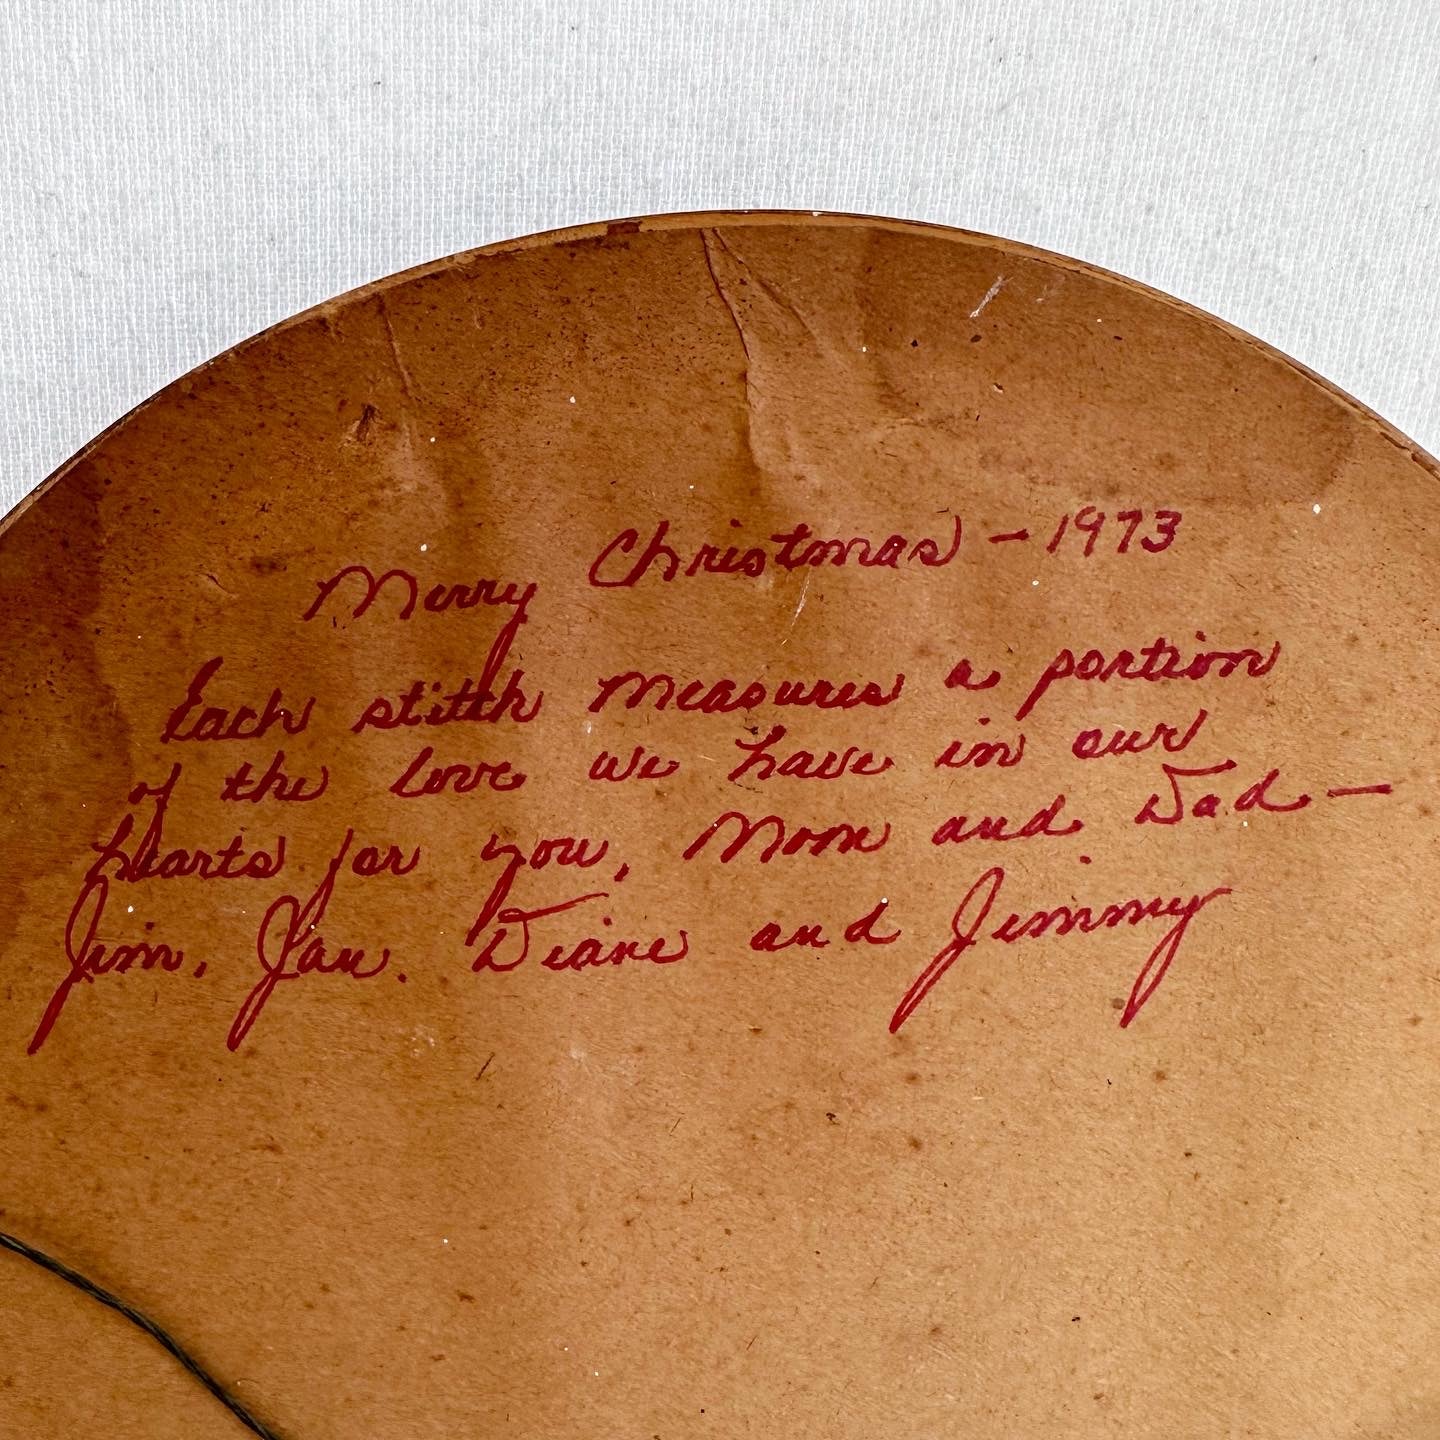 Merry Christmas - 1973
Each stitch measures a portion
of the love we have in our
hearts for you, Mom and Dad —
Jim, Jan. Diane and Jimmy